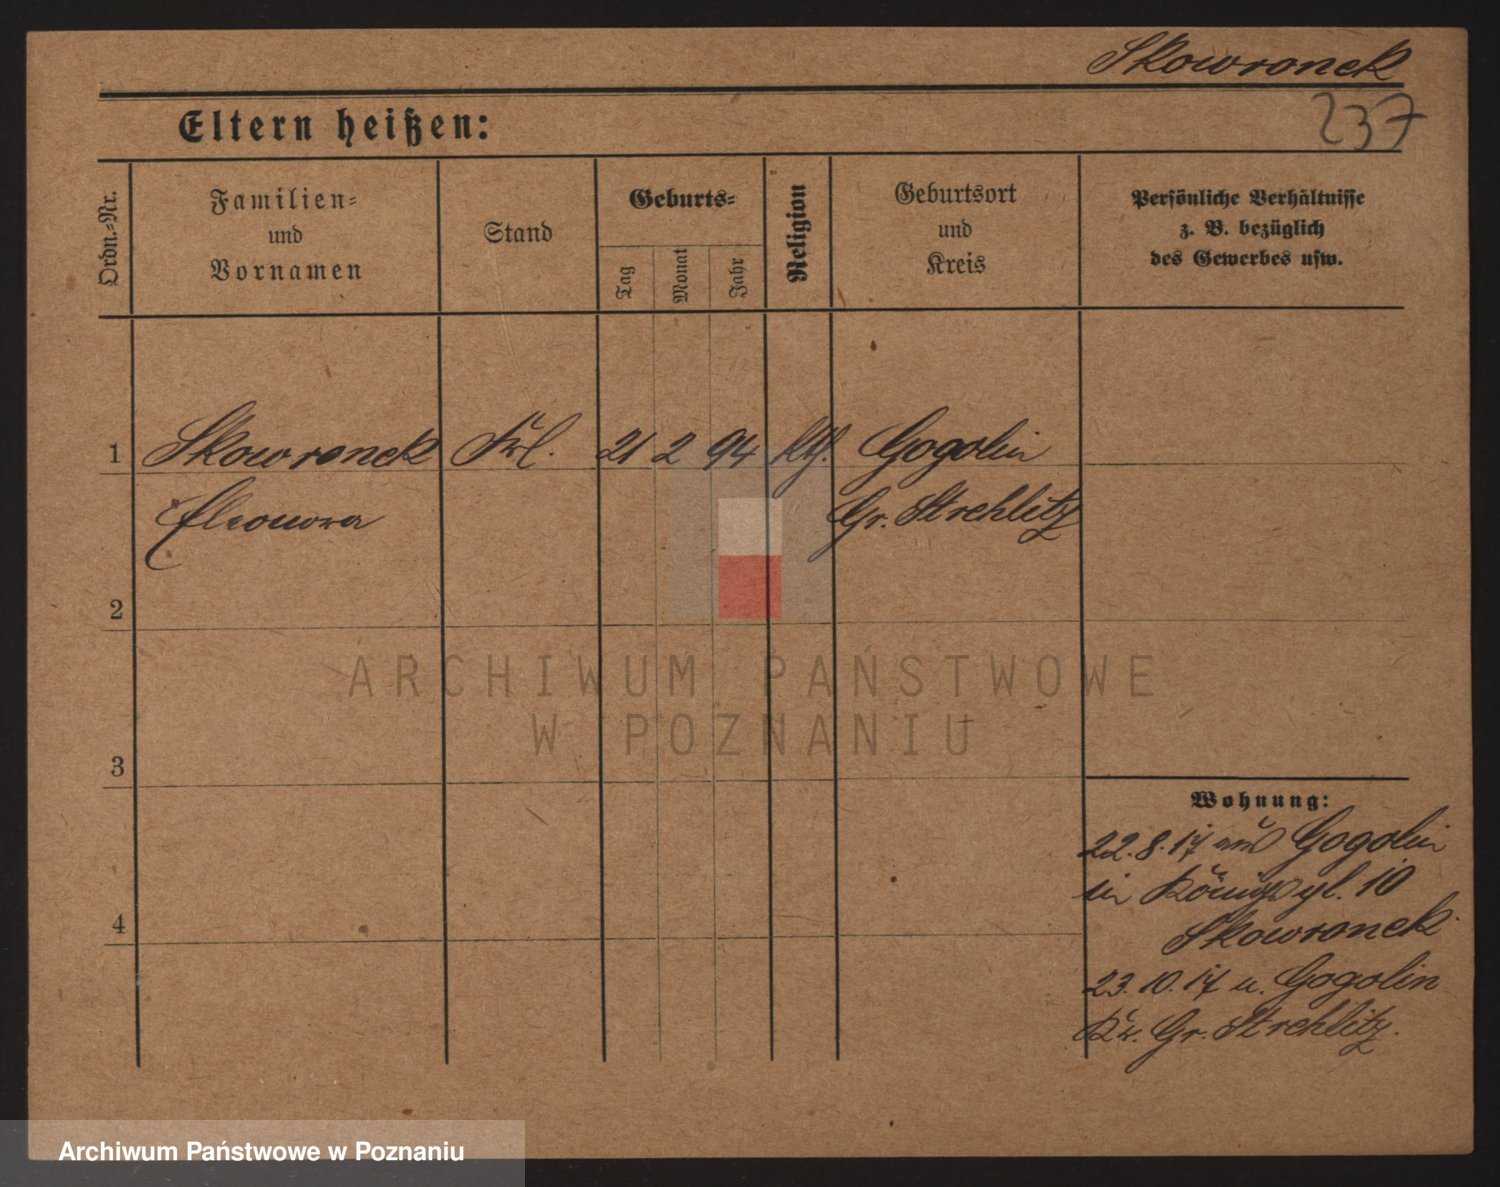 Skowronek
237
Eltern heißen:
Ordn.-Nr.
Familien-
und
Vornamen
Stand
Geburts-
Tag
Monat
Jahr
Religion
Geburtsort
und
Kreis
Persönliche Verhältnisse
z. B. bezüglich
des Gewerbes usw.
1 Skowronek Frl. 21 2 94 kth. Gogolin
Eleonora Gr. Strehlitz
2
ARCHIWUM PAŃSTWOWE
W POZNANIU
3
Wohnung:
22.8.17 aus Gogolin
in Königspl. 10
4
Skowronek
23.10.17 n. Gogolin
Kr. Gr. Strehlitz.
Archiwum Państwowe w Poznaniu